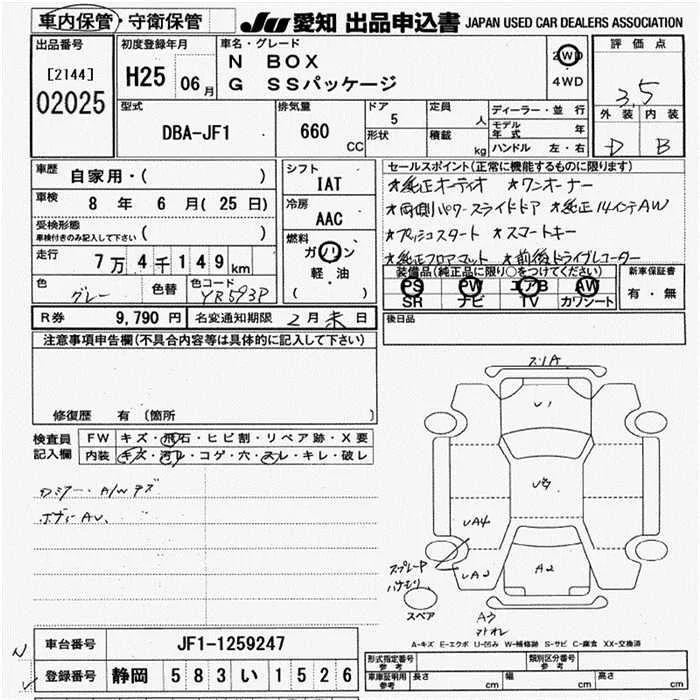 車内保管・守衛保管 JU 愛知 出品申込書 JAPAN USED CAR DEALERS ASSOCIATION
出品番号 初度登録年月 車名・グレード 2WD 評価点
[2144] H25 06月 N BOX 4WD
02025 G SSパッケージ 3.5
型式 排気量 ドア 定員 ディーラー・並行 外装 内装
DBA-JF1 660 CC 5 人 モデル年式 年 D B
形状 積載 kg ハンドル 左・右
車歴 自家用・( ) シフト セールスポイント(正常に機能するものに限ります)
車検 8年 6月(25日) IAT ★純正オーディオ ★ワンオーナー
受検形態 冷房 ★両側パワースライドドア ★純正14インチAW
車検付きのみ記入して下さい ( ) AAC ★プッシュスタート ★スマートキー
走行 7万4千149km 燃料 ★純正フロアマット ★前後ドライブレコーダー
ガソリン 装備品(純正品に限り○をつけてください) 新車保証書
色 色替 色コード 軽・油 PS PW エアB AW 有・無
グレー YR593P ( ) SR ナビ TV カワシート
R券 9,790円 名変通知期限 2月末日 後日品
注意事項申告欄(不具合内容等は具体的に記入して下さい)
修復歴 有 (箇所 )
検査員 FW キズ・飛石・ヒビ割・リペア跡・X要
記入欄 内装 キズ・汚レ・コゲ・穴・スレ・キレ・破レ
A/Wキズ
ボディーAU.
スリA
U1
UA4
UA2
A2
スペア
A3
A-キズ E-エクボ U-凹み W-補修跡 S-サビ C-腐食 XX-交換済
車台番号 JF1-1259247
登録番号 静岡 583い1526
形式指定番号 参考 類別区分番号 参考
車庫証明用 参考 長さ cm 幅 cm 高さ cm